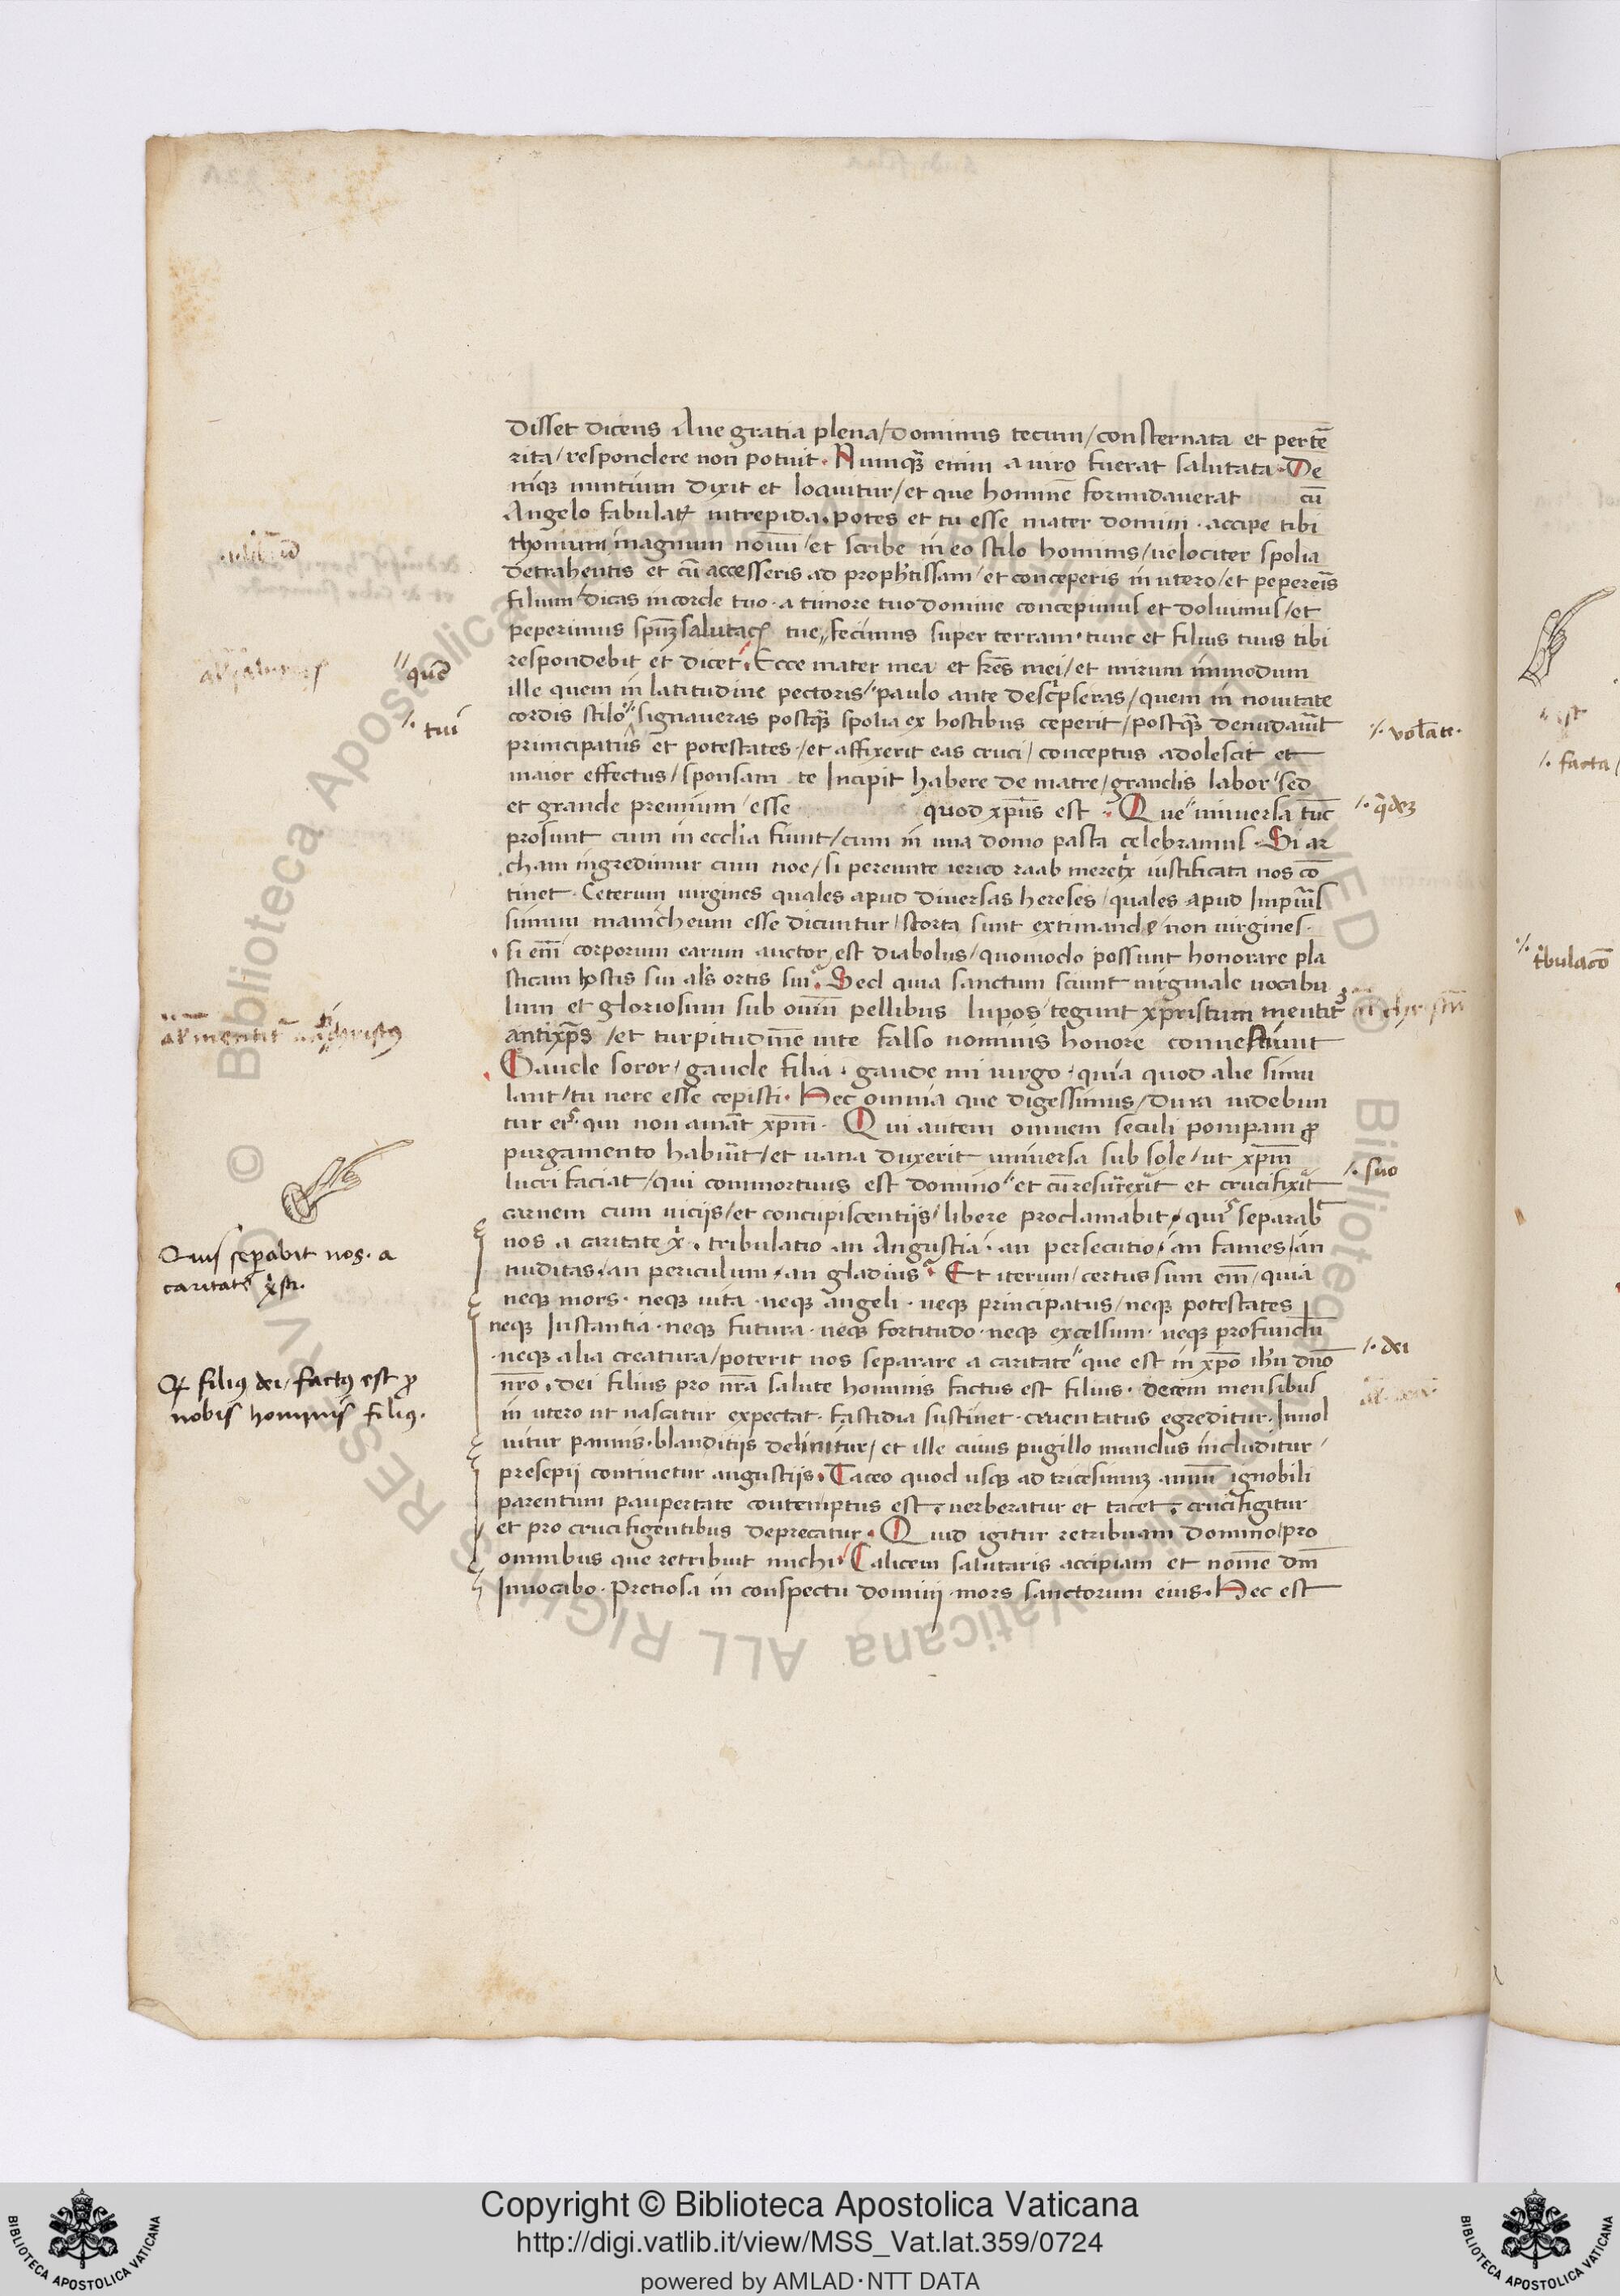 disset dicens Aue gratia plena/dominus tecum/consternata et perte͞
rita/respondere non potuit. Numqꝫ enim a uiro fuerat salutata. De
niqꝫ nuntium dixit et loquitur/et que homine͞ formidauerat cu͞
Angelo fabulatꝛ intrepida. potes et tu esse mater domini. accipe tibi
thomum magnum nouu͞/et scribe in eo stilo hominis/uelociter spolia
detrahentis et cu͞ accesseris ad proph'tissam/et conceperis in utero/et pepereis
filium/dicas in corde tuo. a timore tuo domine concepimus et doluimus/et
peperimus sp͞mꝫ salutac͞ tue,, fecimus super terram. tunc et filius tuus tibi
respondebit et dicet. Ecce mater mea et fr͞es mei/et mirum inmodum
ille quem in latitudine pectoris" paulo ante descpseras/quem in nouitate
cordis stilo" signaueras postqꝫ spolia ex hostibus ceperit/postqꝫ denudauit
principatus et potestates./et affixerit eas cruci/conceptus adolescit et
maior effectus/sponsam te Incipit habere de matre/grandis labor" sed
et grande premium/esse quod xp͞us est. Que" uniuersa tu͞c
prosunt cum in eccl'ia fiunt/cum in una domo pasca celebramus. Si ar
cham ingredimur cum noe/si pereunte ierico raab meretx iustificata nos co͞
tinet. Ceterum uirgines quales apud diuersas hereses/quales apud Impuis
simum manicheum esse dicuntur/scorta sunt extimande/non uirgines.
si em͞ corporum earum auctor est diabolus/quomodo possunt honorare pla
sticam hostis sui al's ortis sui. Sed quia sanctum sciunt uirginale uocabu
lum et gloriosum sub ouiu͞m pellibus lupos tegunt xpristum mentitꝛ
antixp͞s/et turpitudine͞ uite falso nominis honore conuestiunt
Gaude soror/gaude filia. gaude mi uirgo. quia quod alie simu
lant/tu uere esse cepisti. Hec omnia que digessimus/dura uidebun
tur ei. qui non amat xp͞m. Qui autem omnem seculi pompam ꝓ
purgamento habuit/et uana duxerit uniuersa sub sole/ut xp͞m
lucri faciat/qui commortuus est domino" et cu͞resurexit et crucifixit
carnem cum uiciis/et concupiscentiis/libere proclamabit. quis separab
nos a caritate x'. tribulatio an Angustia. an persecutio/an fames/an
nuditas/an periculum/an gladius. Et iterum/certus sum em͞/quia
neqꝫ mors. neqꝫ uita. neqꝫ angeli. neqꝫ principatus/neqꝫ potestates
neqꝫ Instantia. neqꝫ futura. neqꝫ fortitudo. neqꝫ excelsum. neqꝫ profundu͞
neqꝫ alia creatura/poterit nos separare a caritate" que est in xp͞o ih'u dn͞o
nr͞o. dei filius pro nr͞a salute hominis factus est filius. decem mensibus
in utero ut nascatur expectat. fastidia sustinet. cruentatus egreditur. Inuol
uitur pannis. blanditiis delinitur/et ille cuius pugillo mundus includitur/
presepii continetur angustiis. Taceo quod usqꝫ ad tricesimuꝫ annu͞ ignobili
parentum paupertate contemptus est. uerberatur et tacet. crucifigitur
et pro crucifigentibus deprecatur. Quid igitur retribuam domino/pro
omnibus que retribuit michi. Calicem salutaris accipiam et nome͞ dm͞
Inuocabo. Pretiosa in conspectu domini. mors sanctorum eius. Hec est
"que͞
/. tui
al' mentit͞ antichristus
Quis sepabit nos. a
caritate xsti.
Qꝛ filiꝰ dei/factꝰ est ꝓ
nobis hominis filiꝰ.
/. vol͞ate.
/. q͞deꝫ
/. suo
/. dei
"est
/. facta/
/. t'bulaco͞
Copyright © Biblioteca Apostolica Vaticana
http://digi.vatlib.it/view/MSS_Vat.lat.359/0724
powered by AMLAD·NTT DATA
BIBLIOTECA APOSTOLICA VATICANA
BIBLIOTECA APOSTOLICA VATICANA